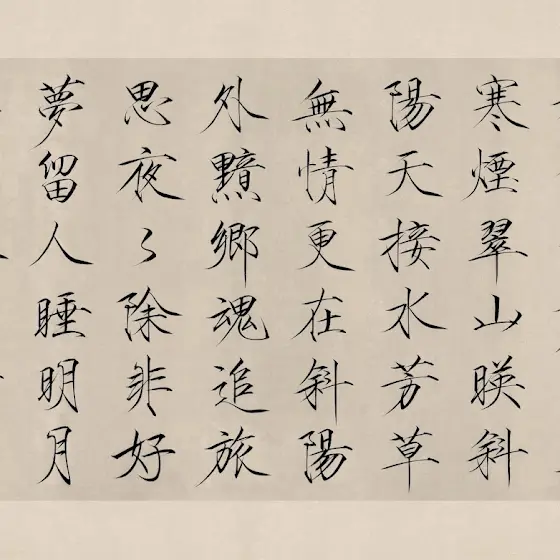 寒煙翠山暎斜
陽天接水芳草
無情更在斜陽
外黯鄉魂追旅
思夜〻除非好
夢留人睡明月